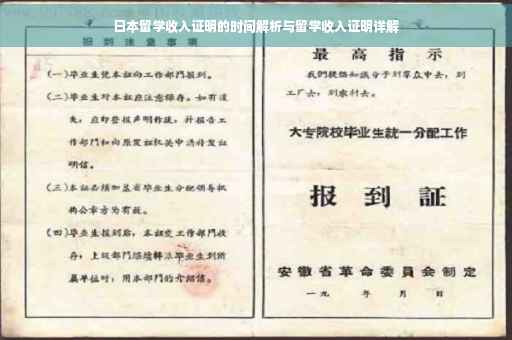 日本留学收入证明的时间解析与留学收入证明详解
报到注意事项
(一)毕业生凭本证向工作部门报到。
(二)毕业生对本证应注意保存。如有遗
失,应即登报声明作废,并报告工
作部门和向原发证机关申请补发证
明信。
(三)本证必须加盖省毕业生分配领导机
构公章方为有效。
(四)毕业生报到后,本证交工作部门收
存;上级部门继续转派毕业生到所
属单位时,用本部门的介绍信。
最高指示
我们提倡知识分子到群众中去,到
工厂去,到农村去。
大专院校毕业生统一分配工作
报到证
安徽省革命委员会制定
一九 年 月 日